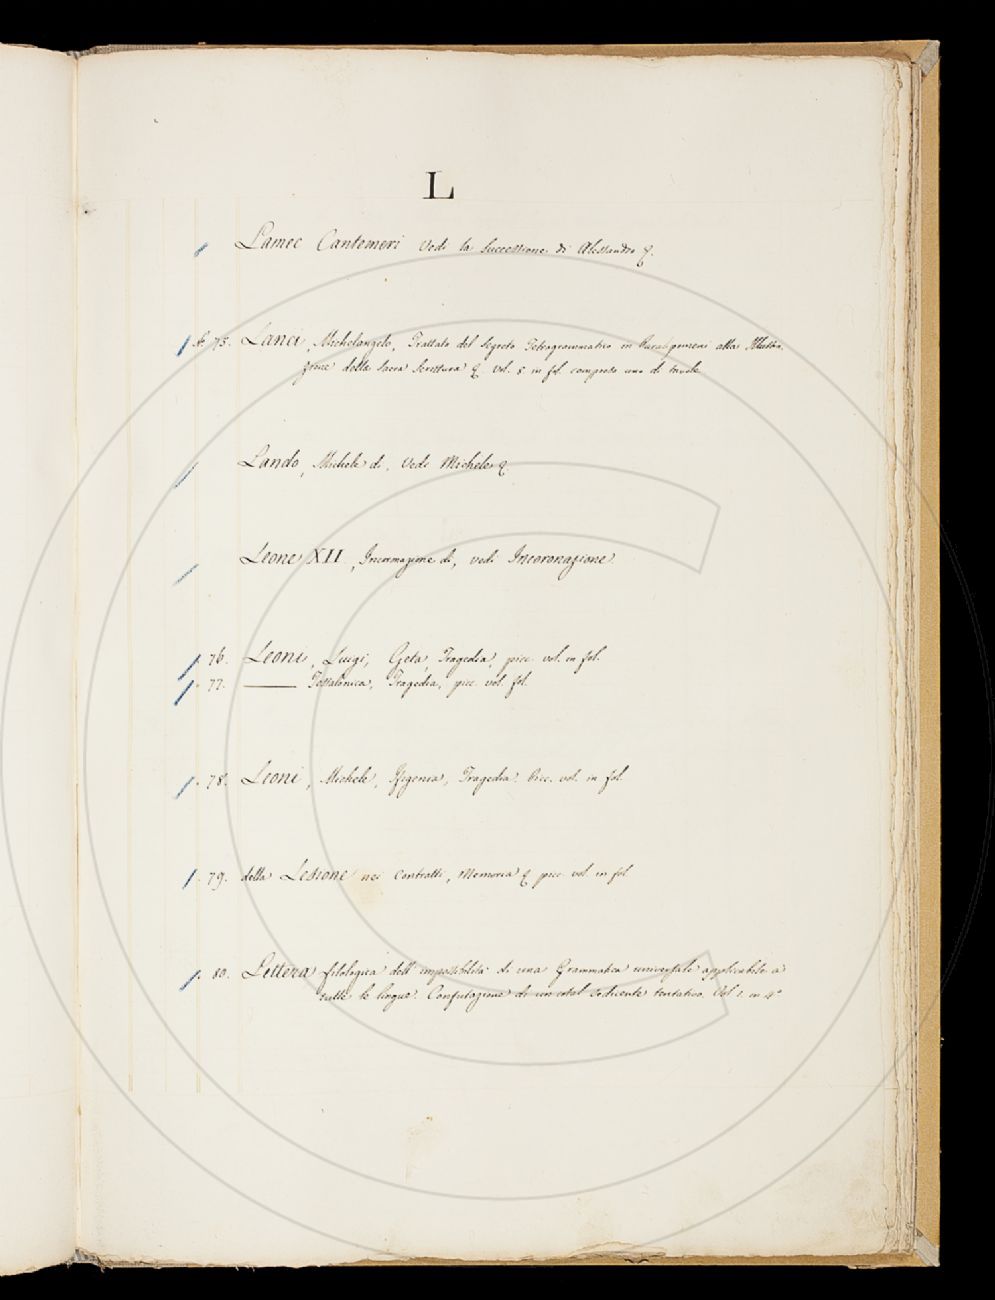 L
Lamec Cantemeri vedi la successione di Alessandro &.
N. 75. Lanci, Michelangelo, Trattato del segreto Tetragrammatico in Paralipomeni alla Illustra
zione della Sacra Scrittura &. Vol. in fol. compreso uno di tavole
Lando, Michele di, vedi Michele &
Leone XII, Incoronazione di, vedi Incoronazione
76. Leoni, Luigi, Geta, Tragedia, picc. vol. in fol.
77. ——— Tessalonica, Tragedia, picc. vol. fol.
78. Leoni, Michele, Ifigenia, Tragedia. Picc. vol. in fol
79. della Lesione nei contratti, Memoria & picc. vol. in fol
80. Lettera filologica dell'impossibilità di una Grammatica universale applicabile a
tutte le lingue. Confutazione di un cotal sedicente tentativo. Vol 1. in 4°